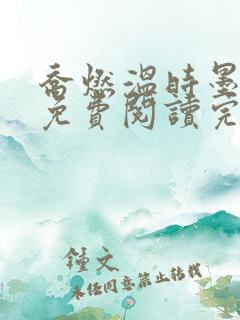 喬燃溫時墨
免費閱讀完
鍾文
未經同意禁止轉載